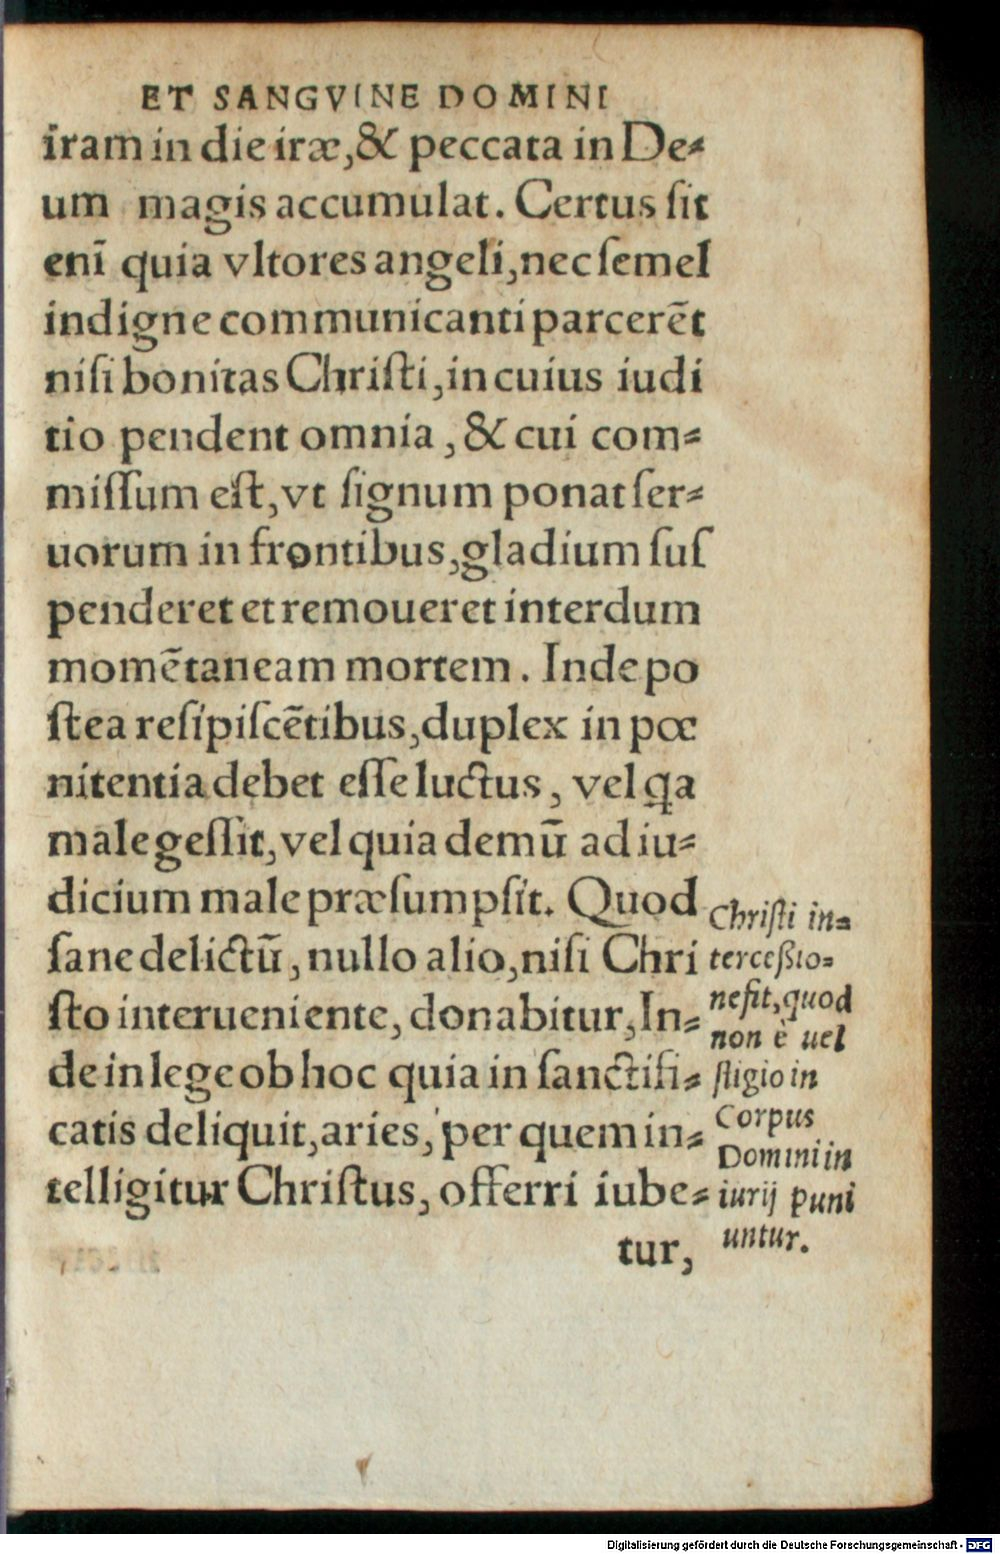 ET SANGVINE DOMINI
iram in die iræ, & peccata in De⸗
um magis accumulat. Certus ſit
enī quia vltores angeli, nec ſemel
indigne communicanti parcerēt
niſi bonitas Chriſti, in cuius iudi
tio pendent omnia, & cui com⸗
miſſum eſt, vt ſignum ponat ſer⸗
uorum in frontibus, gladium ſuſ
penderet et remoueret interdum
momētaneam mortem. Inde po
ſtea reſipiſcētibus, duplex in pœ
nitentia debet eſſe luctus, vel qa
male geſſit, vel quia demū ad iu⸗
dicium male præſumpſit. Quod
ſane delictū, nullo alio, niſi Chri
ſto interueniente, donabitur, In⸗
de in lege ob hoc quia in ſanctifi⸗
catis deliquit, aries, per quem in⸗
telligitur Chriſtus, offerri iube⸗
tur,
Chriſti in⸗
terceßio⸗
ne fit, quod
non è ueſ
ſtigio in
Corpus
Domini in
iurij puni
untur.
Digitalisierung gefördert durch die Deutsche Forschungsgemeinschaft - DFG